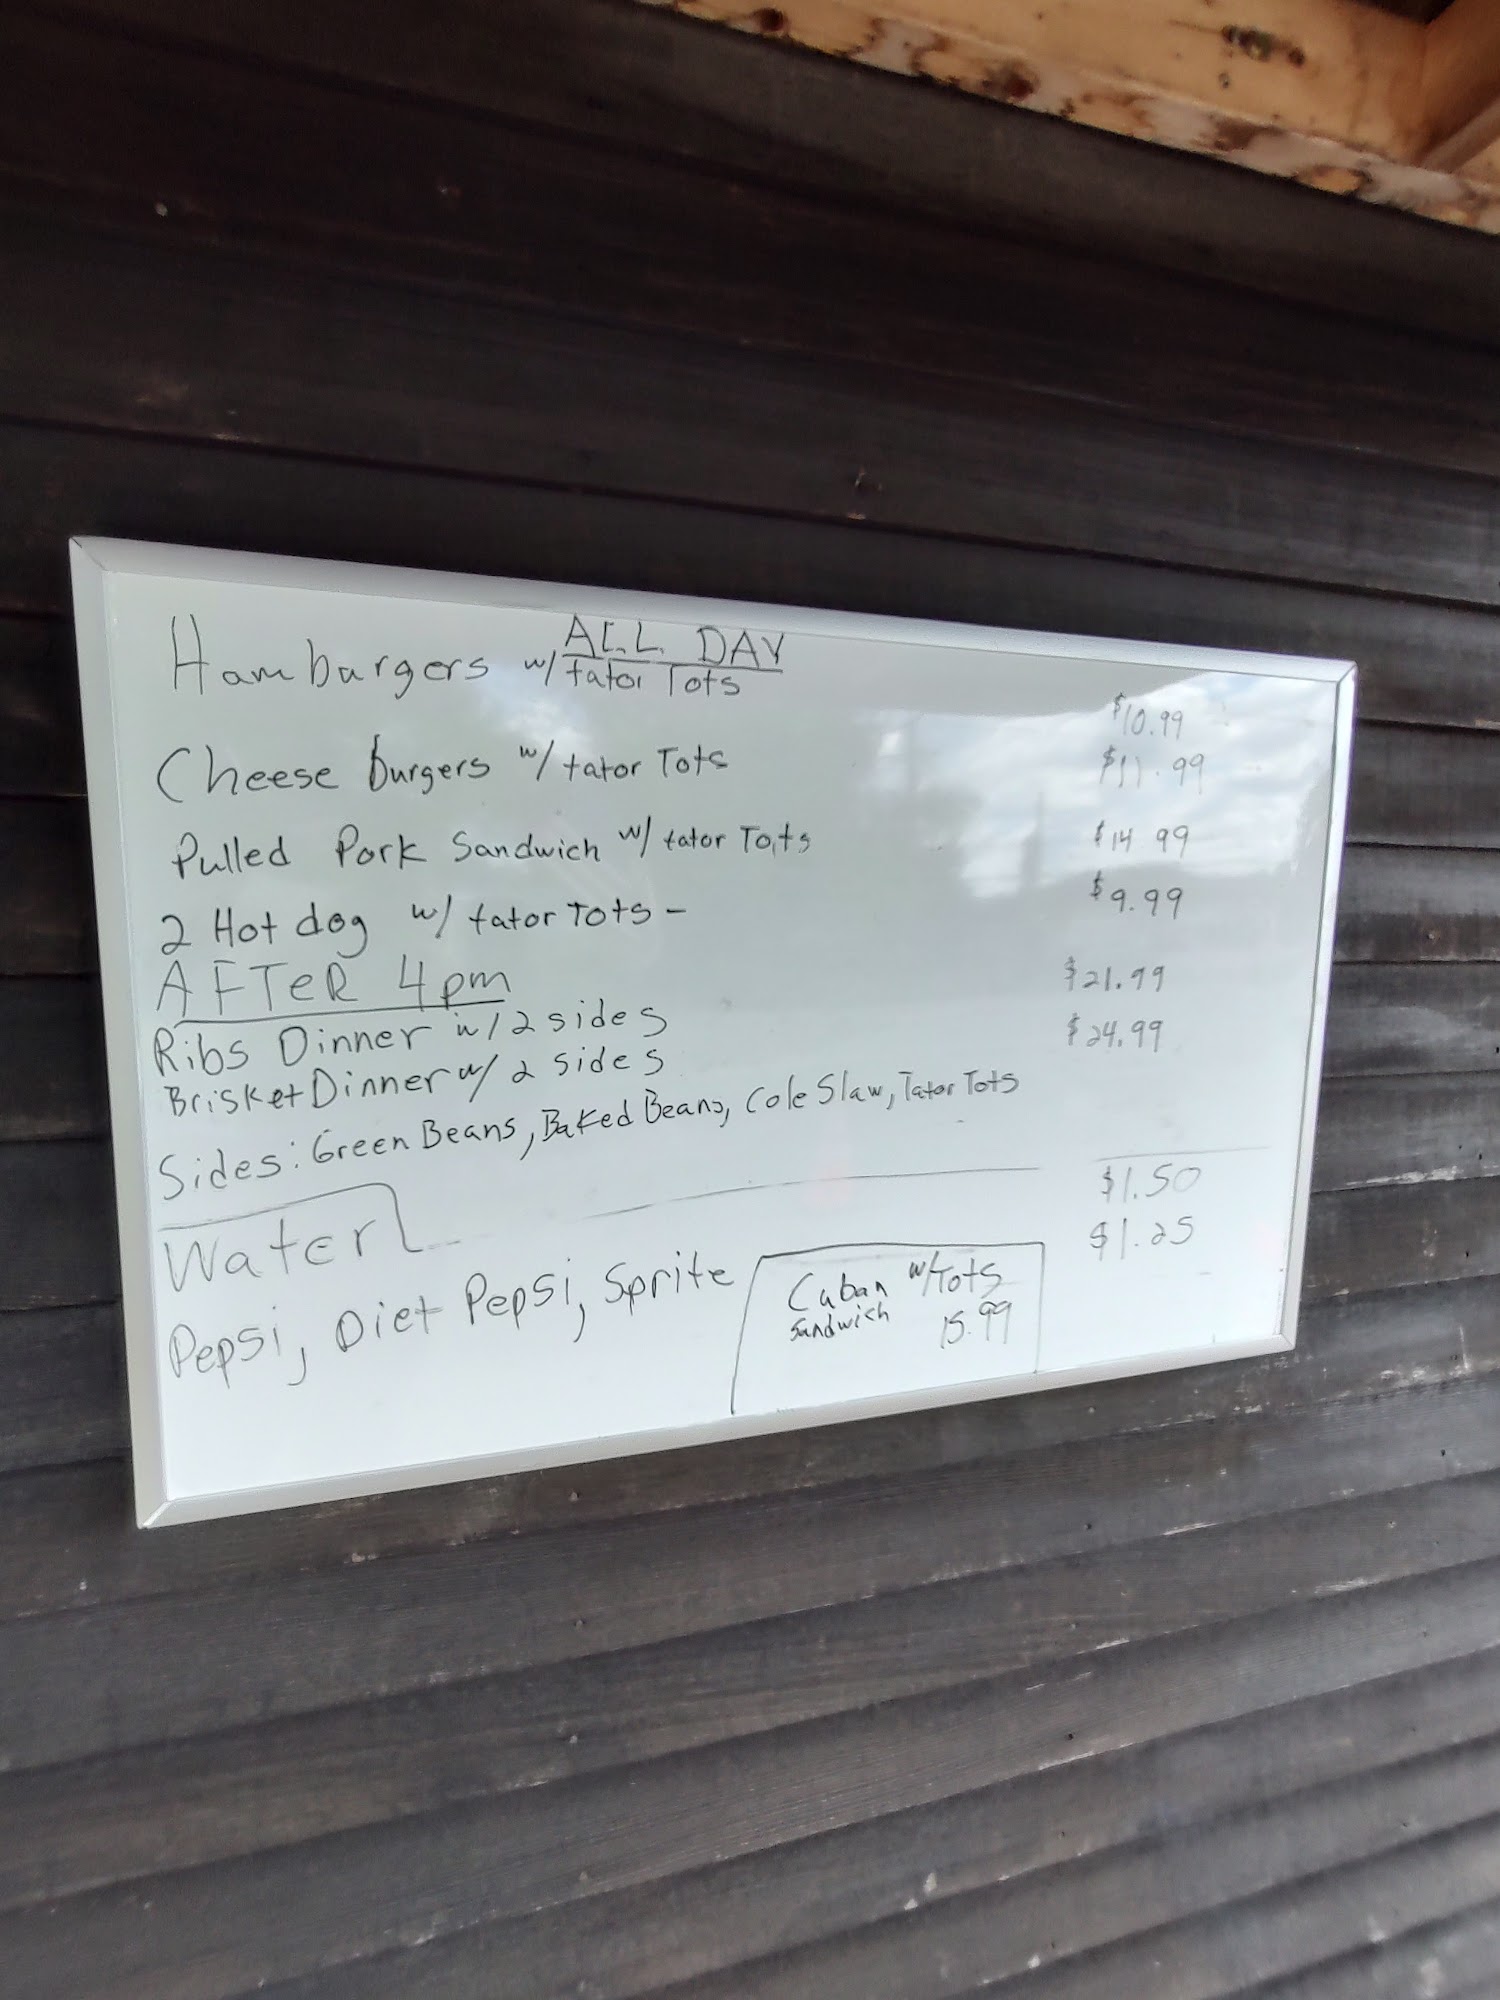 ALL DAY
Hamburgers w/ tator Tots $10.99
Cheese burgers w/ tator Tots $11.99
Pulled Pork Sandwich w/ tator Tots $14 99
2 Hot dog w/ tator Tots - $9.99
AFTeR 4pm
Ribs Dinner w/ 2 sides $21.99
Brisket Dinner w/ 2 sides $24.99
Sides: Green Beans, Baked Beans, Cole Slaw, Tator Tots
Water $1.50
Pepsi, Diet Pepsi, Sprite $1.25
Cuban w/Tots
Sandwich 15.99